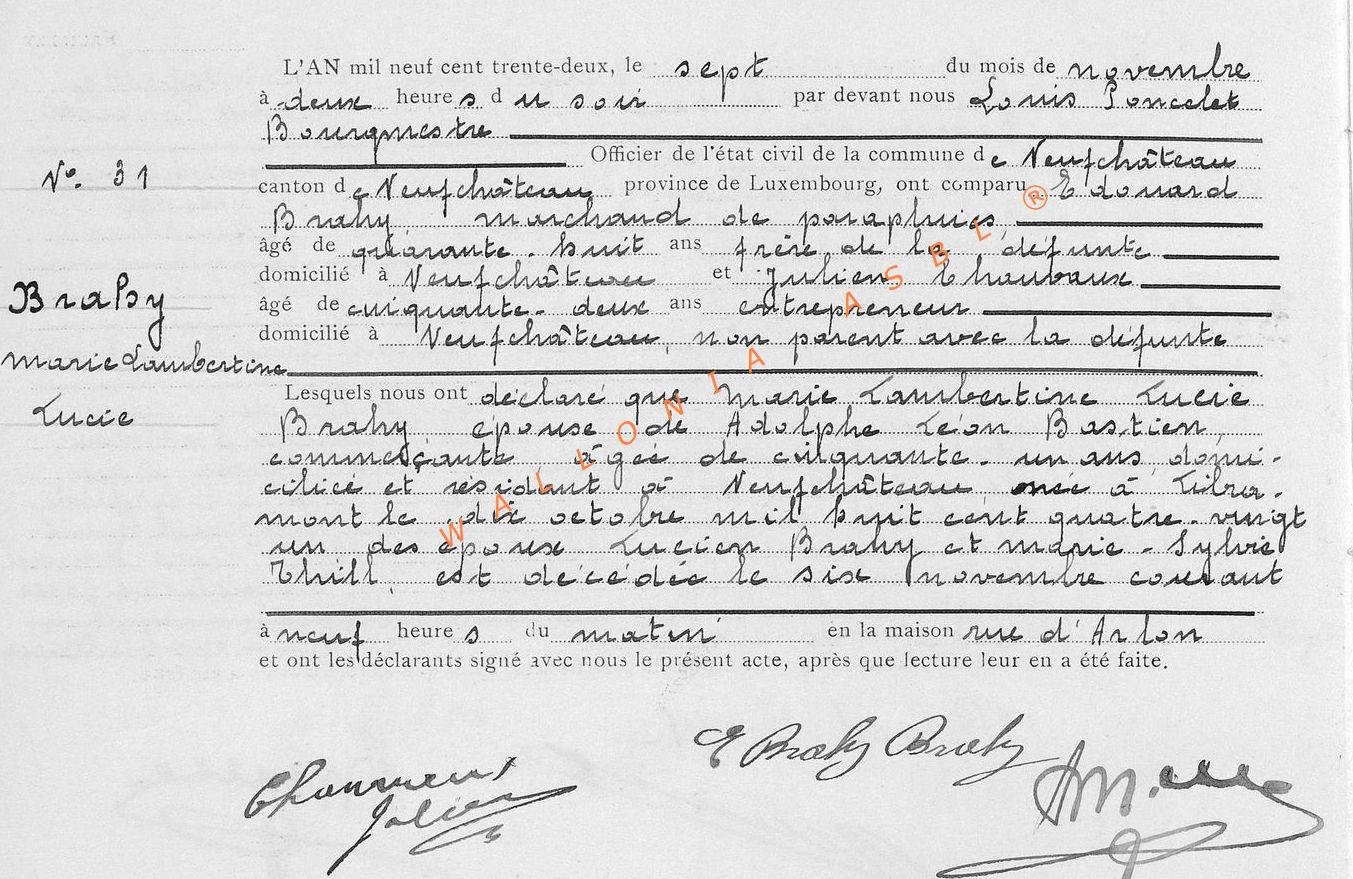 L'AN mil neuf cent trente-deux, le sept du mois de novembre
à deux heures du soir par devant nous Louis Poncelet
Bourgmestre
Officier de l'état civil de la commune de Neufchâteau
N°. 31
canton de Neufchâteau province de Luxembourg, ont comparu Edouard
Brahy, marchand de parapluies,
âgé de quarante-huit ans frère de la défunte
domicilié à Neufchâteau et Julien
Brahy
âgé de cinquante-deux ans entrepreneur
domicilié à Neufchâteau, non parent avec la défunte
Marie Lambertine
Lesquels nous ont déclaré que Marie Lambertine Lucie
Lucie
Brahy, épouse de Adolphe Léon Bastien,
commerçante âgée de cinquante-un ans, domi-
ciliée et résidant à Neufchâteau, née à Libra-
mont le dix octobre mil huit cent quatre-vingt
un des époux Lucien Brahy et Marie-Sylvie
Thill, est décédée le six novembre courant
à neuf heures du matin en la maison rue d'Arlon
et ont les déclarants signé avec nous le présent acte, après que lecture leur en a été faite.
WALLONIA ASBL ®
E Brahy Brahy
Julien